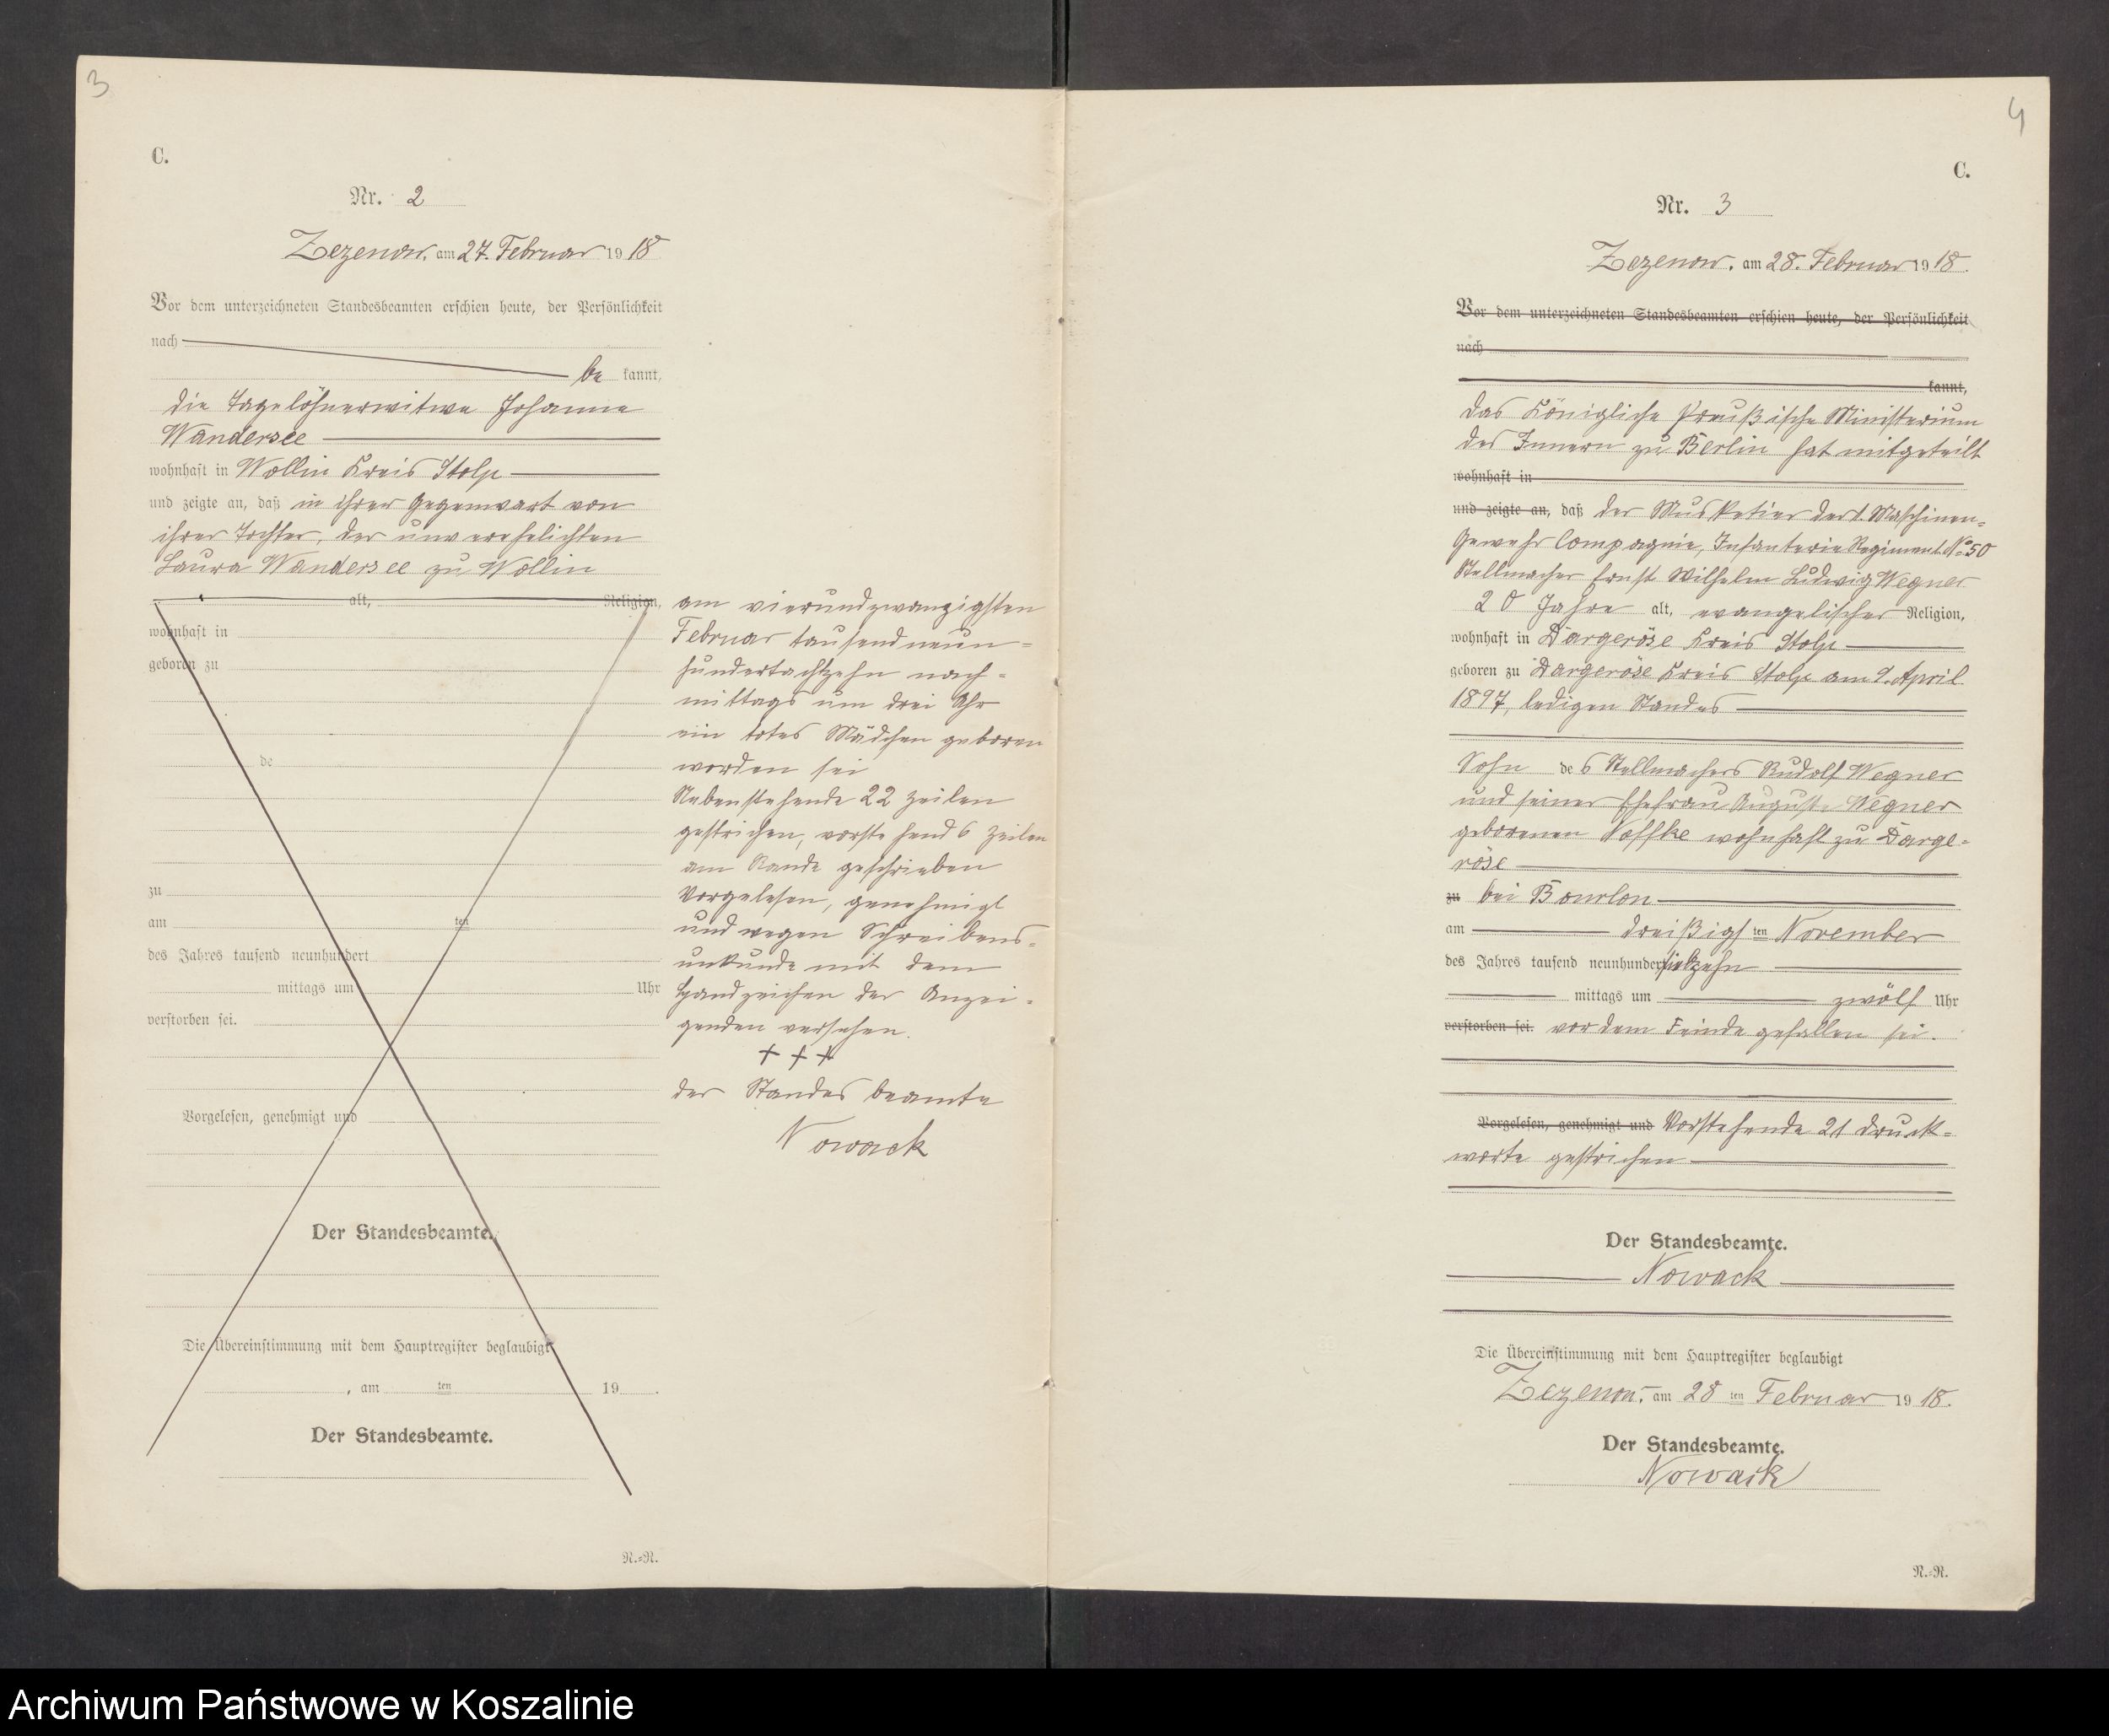 3
C.
Nr. 2
Zezenow, am 27. Februar 1918
Vor dem unterzeichneten Standesbeamten erschien heute, der Persönlichkeit
nach
be kannt,
die Tagelöhnerwitwe Johanne
Wandersee
wohnhaft in Wollin Kreis Stolp
und zeigte an, daß in ihrer Gegenwart von
ihrer Tochter, der unverehelichten
Laura Wandersee zu Wollin
alt, Religion,
wohnhaft in
geboren zu
de
zu
am ten
des Jahres tausend neunhundert
mittags um Uhr
verstorben sei.
Vorgelesen, genehmigt und
Der Standesbeamte.
Die Übereinstimmung mit dem Hauptregister beglaubigt
, am ten 19 .
Der Standesbeamte.
R.-R.
am vierundzwanzigsten
Februar tausendneun-
hundertachtzehn nach-
mittags um drei Uhr
ein totes Mädchen geboren
worden sei
Nebenstehende 22 Zeilen
gestrichen, vorstehend 6 Zeilen
am Rande geschrieben
Vorgelesen, genehmigt
und wegen Schreibens-
unkunde mit dem
Handzeichen der Anzei-
genden versehen.
+ + +
der Standesbeamte
Nowack
4
C.
Nr. 3
Zezenow, am 28. Februar 1918.
Vor dem unterzeichneten Standesbeamten erschien heute, der Persönlichkeit
nach
kannt,
Das Königliche Preußische Ministerium
des Innern zu Berlin hat mitgeteilt
wohnhaft in
und zeigte an, daß der Musketier der 1. Maschinen-
Gewehr Compagnie, Infanterie Regiment No 50
Stellmacher Ernst Wilhelm Ludwig Wegner
20 Jahre alt, evangelischer Religion,
wohnhaft in Dargeröse Kreis Stolp
geboren zu Dargeröse Kreis Stolp am 9. April
1897, ledigen Standes
Sohn des Stellmachers Rudolf Wegner
und seiner Ehefrau Auguste Wegner
geborenen Noffke wohnhaft zu Darge-
röse
zu bei Bourlon
am dreißigsten November
des Jahres tausend neunhundert siebzehn
mittags um zwölf Uhr
verstorben sei. vor dem Feinde gefallen sei.
Vorgelesen, genehmigt und Vorstehende 21 Druck-
worte gestrichen
Der Standesbeamte.
Nowack
Die Übereinstimmung mit dem Hauptregister beglaubigt
Zezenow, am 28 ten Februar 1918.
Der Standesbeamte.
Nowack
R.-R.
Archiwum Państwowe w Koszalinie